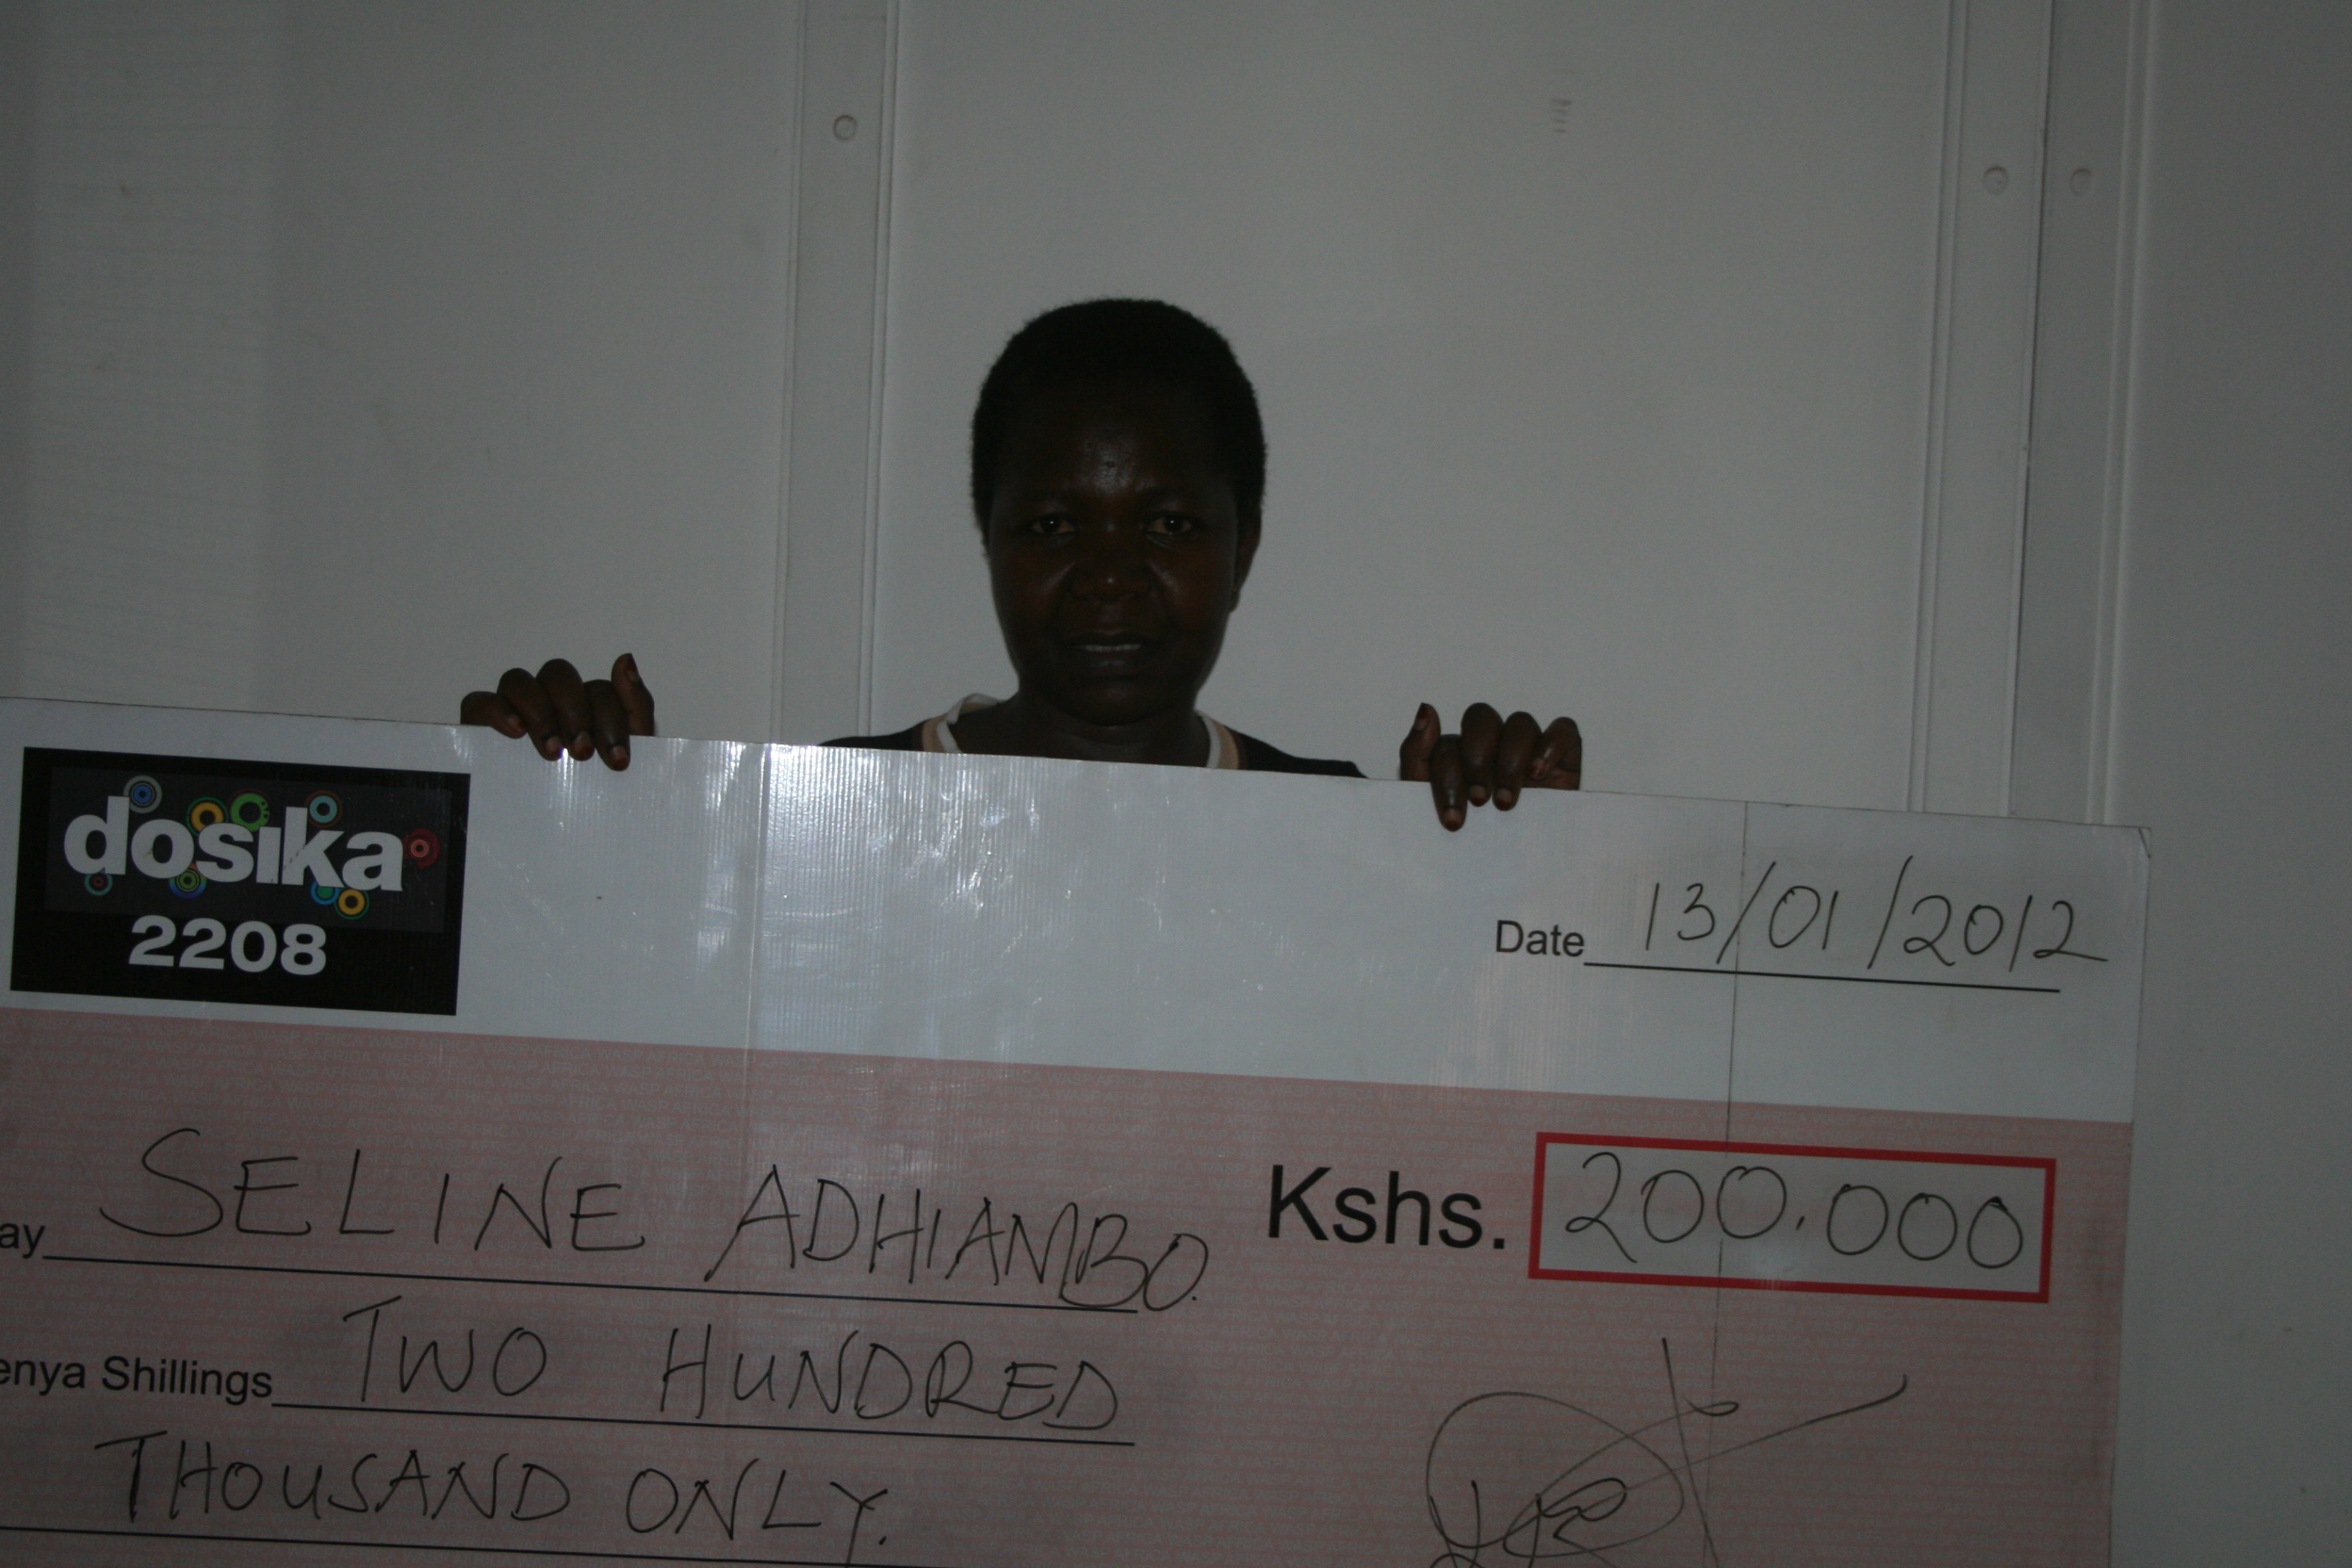 dosika
2208
Date 13/01/2012
ay SELINE ADHIAMBO.
Kshs. 200.000
enya Shillings TWO HUNDRED
THOUSAND ONLY.